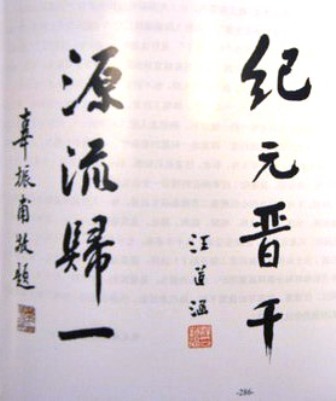 纪元晋干
汪道涵
源流歸一
辜振甫敬題
-286-